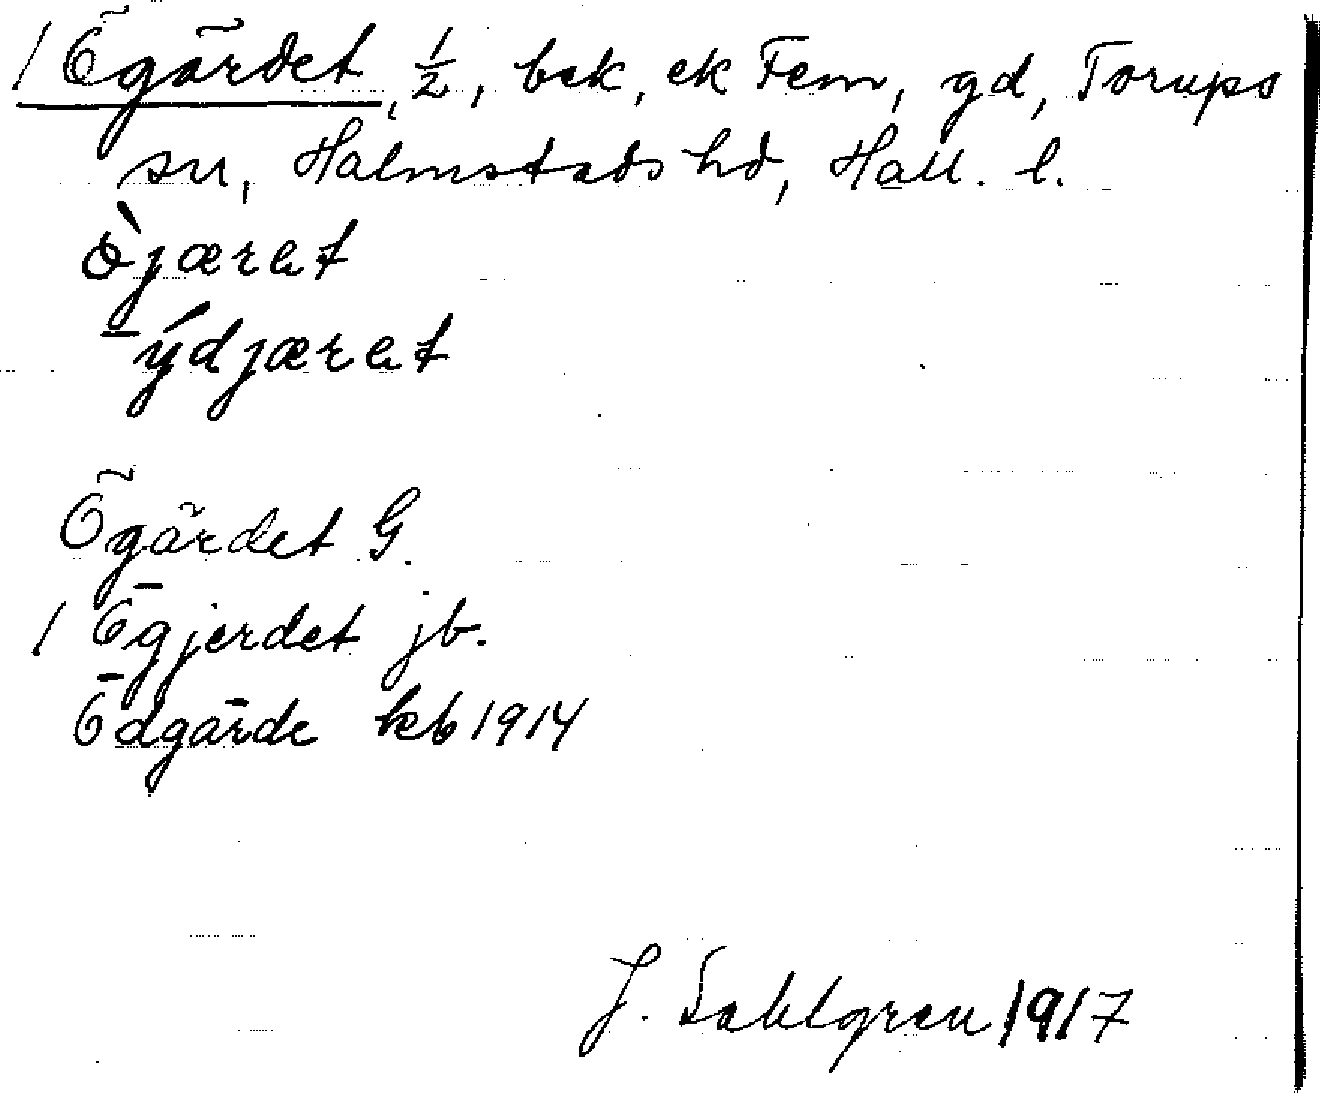 1 Ögärdet, 1/2, bek, ek Fem, gd, Torups
sn, Halmstads hd, Hall. l.
ò̵jæret
ýdjæret
Ögärdet G.
1 Ögjerdet jb.
Ödgärde kb 1914
J. Sahlgren 1917